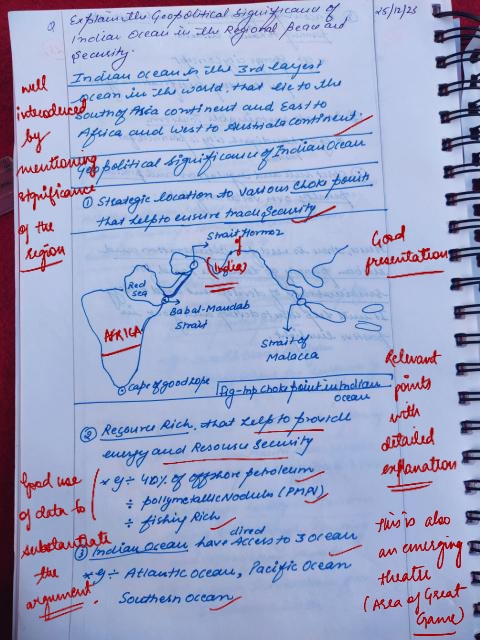 Q Explain the Geopolitical Significance of
Indian Ocean in the Regional Peace and
Security.
25/12/23
Indian Ocean is the 3rd largest
ocean in the world, that lie to the
South of Asia continent and East to
Africa and West to Australia Continent.
well
introduced
by
mentioning
significance
of the
region
Geopolitical Significance of Indian Ocean
① Strategic location to various Choke points
that help to ensure trade security
Strait Hormoz
(India)
Red
Sea
Babal-Mandab
Strait
AFRICA
Strait of
Malacca
Cape of good hope
Fig-Imp Choke point in Indian
ocean
Good
presentation
② Resource Rich, that help to provide
energy and Resource Security
* eg ÷ 40% of offshore petroleum
÷ pollymetallic Nodules (PMN)
÷ fishing Rich
Good use
of data to
substantiate
the
argument.
Relevant
points
with
detailed
explanation
③ Indian Ocean have direct Access to 3 Ocean
* eg ÷ Atlantic ocean, Pacific Ocean
Southern Ocean
This is also
an emerging
theatre
(Area of Great
Game)